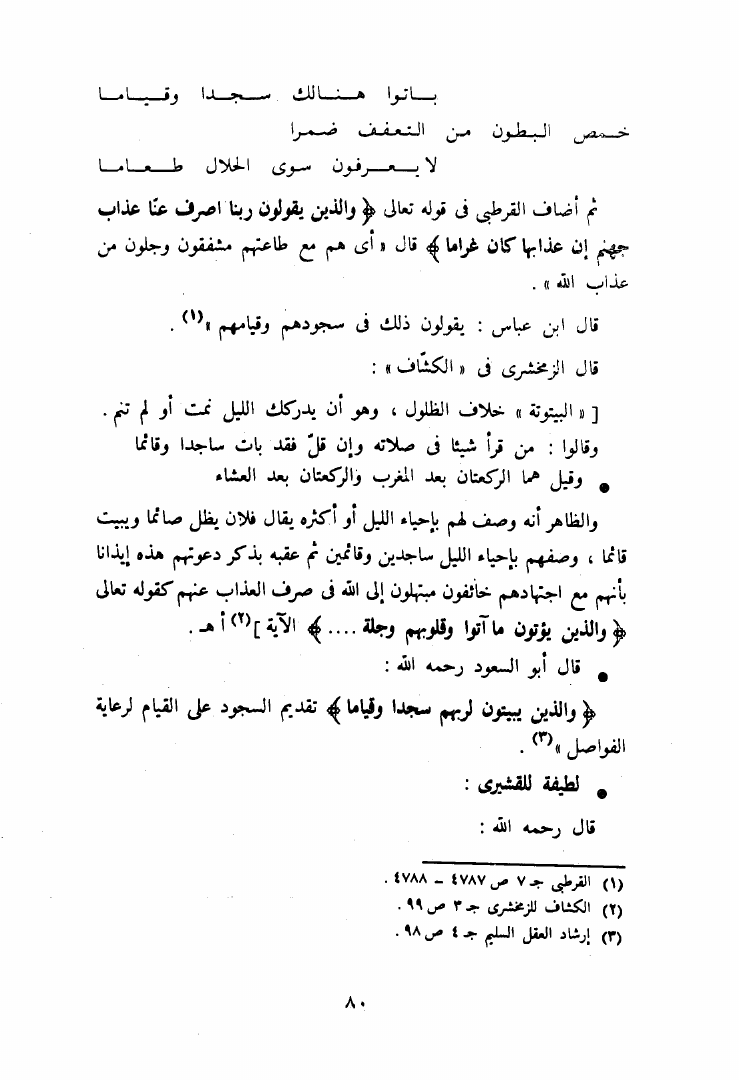 بـاتوا هنـالك سـجـدا وقـيـاما
خمص البطون من التعفف ضمرا
لا يـعـرفون سوى الحلال طـعـاما
ثم أضاف القرطبى فى قوله تعالى ﴿ والذين يقولون ربنا اصرف عنّا عذاب
جهنم إن عذابها كان غراما ﴾ قال « أى هم مع طاعتهم مشفقون وجلون من
عذاب الله » .
قال ابن عباس : يقولون ذلك فى سجودهم وقيامهم »(١) .
قال الزمخشرى فى « الكشّاف » :
[ « البيتوتة » خلاف الظلول ، وهو أن يدركك الليل نمت أو لم تنم .
وقالوا : من قرأ شيئا فى صلاته وإن قلّ فقد بات ساجدا وقائما
● وقيل هما الركعتان بعد المغرب والركعتان بعد العشاء
والظاهر أنه وصف لهم بإحياء الليل أو أكثره يقال فلان يظل صائما ويبيت
قائما ، وصفهم بإحياء الليل ساجدين وقائمين ثم عقبه بذكر دعوتهم هذه إيذانا
بأنهم مع اجتهادهم خائفون مبتهلون إلى الله فى صرف العذاب عنهم كقوله تعالى
﴿ والذين يؤتون ما آتوا وقلوبهم وجلة .... ﴾ الآية ](٢) أ هـ .
● قال أبو السعود رحمه الله :
﴿ والذين يبيتون لربهم سجدا وقياما ﴾ تقديم السجود على القيام لرعاية
الفواصل »(٣) .
● لطيفة للقشيرى :
قال رحمه الله :
(١) القرطبى جـ ٧ ص ٤٧٨٧ – ٤٧٨٨ .
(٢) الكشاف للزمخشرى جـ ٣ ص ٩٩ .
(٣) إرشاد العقل السليم جـ ٤ ص ٩٨ .
٨٠